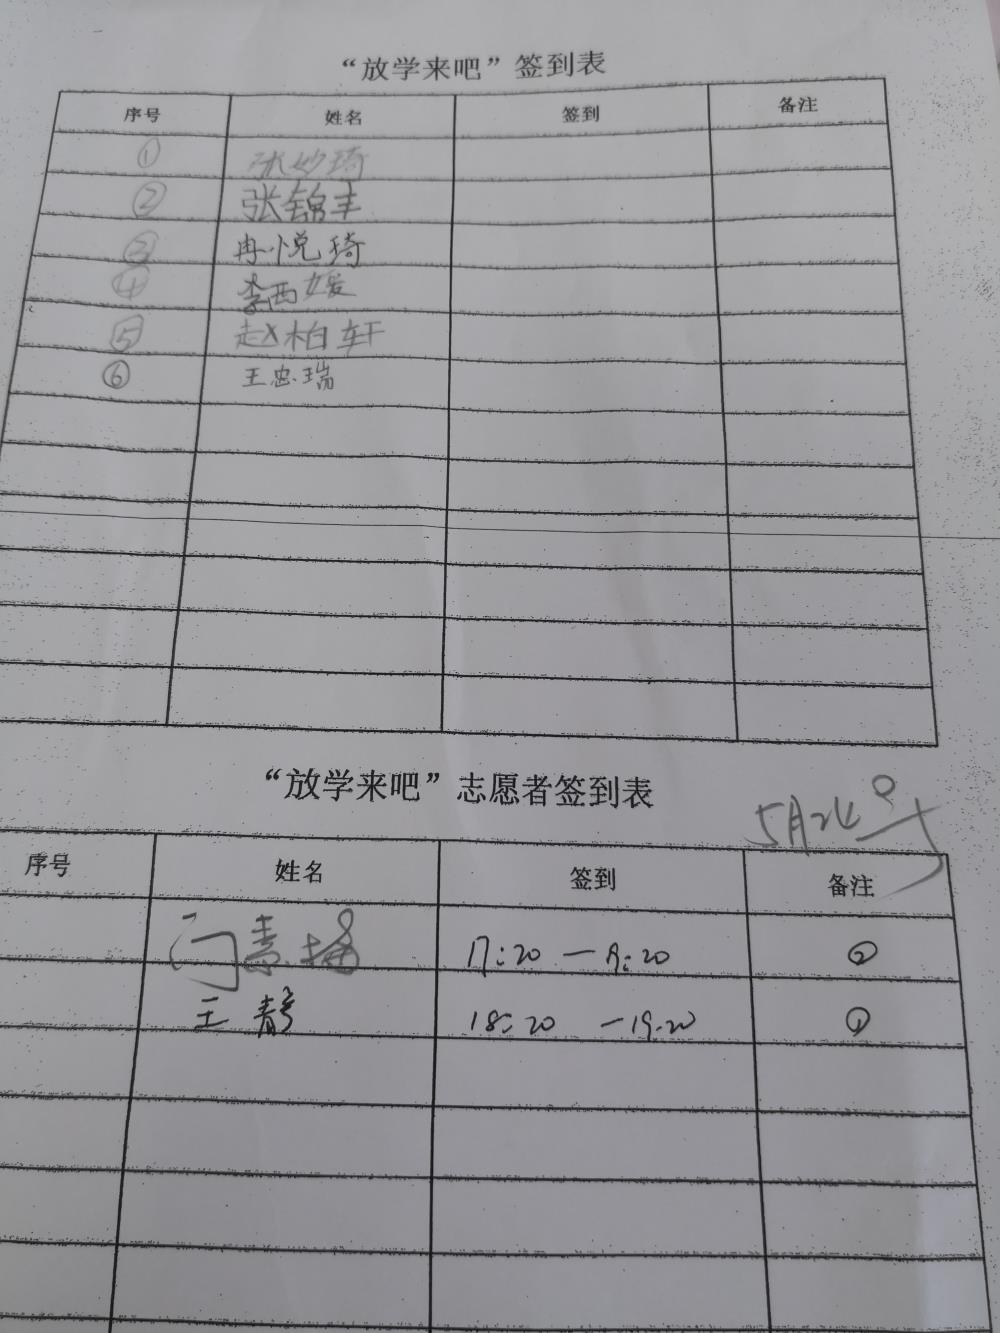 “放学来吧”签到表
序号 姓名 签到 备注
① 张妙琦
② 张锦丰
③ 冉悦琦
④ 李西媛
⑤ 赵柏轩
⑥ 王忠瑞
“放学来吧”志愿者签到表
5月24日
序号 姓名 签到 备注
17:20—19:20 ②
王静 18:20—19:20 ①